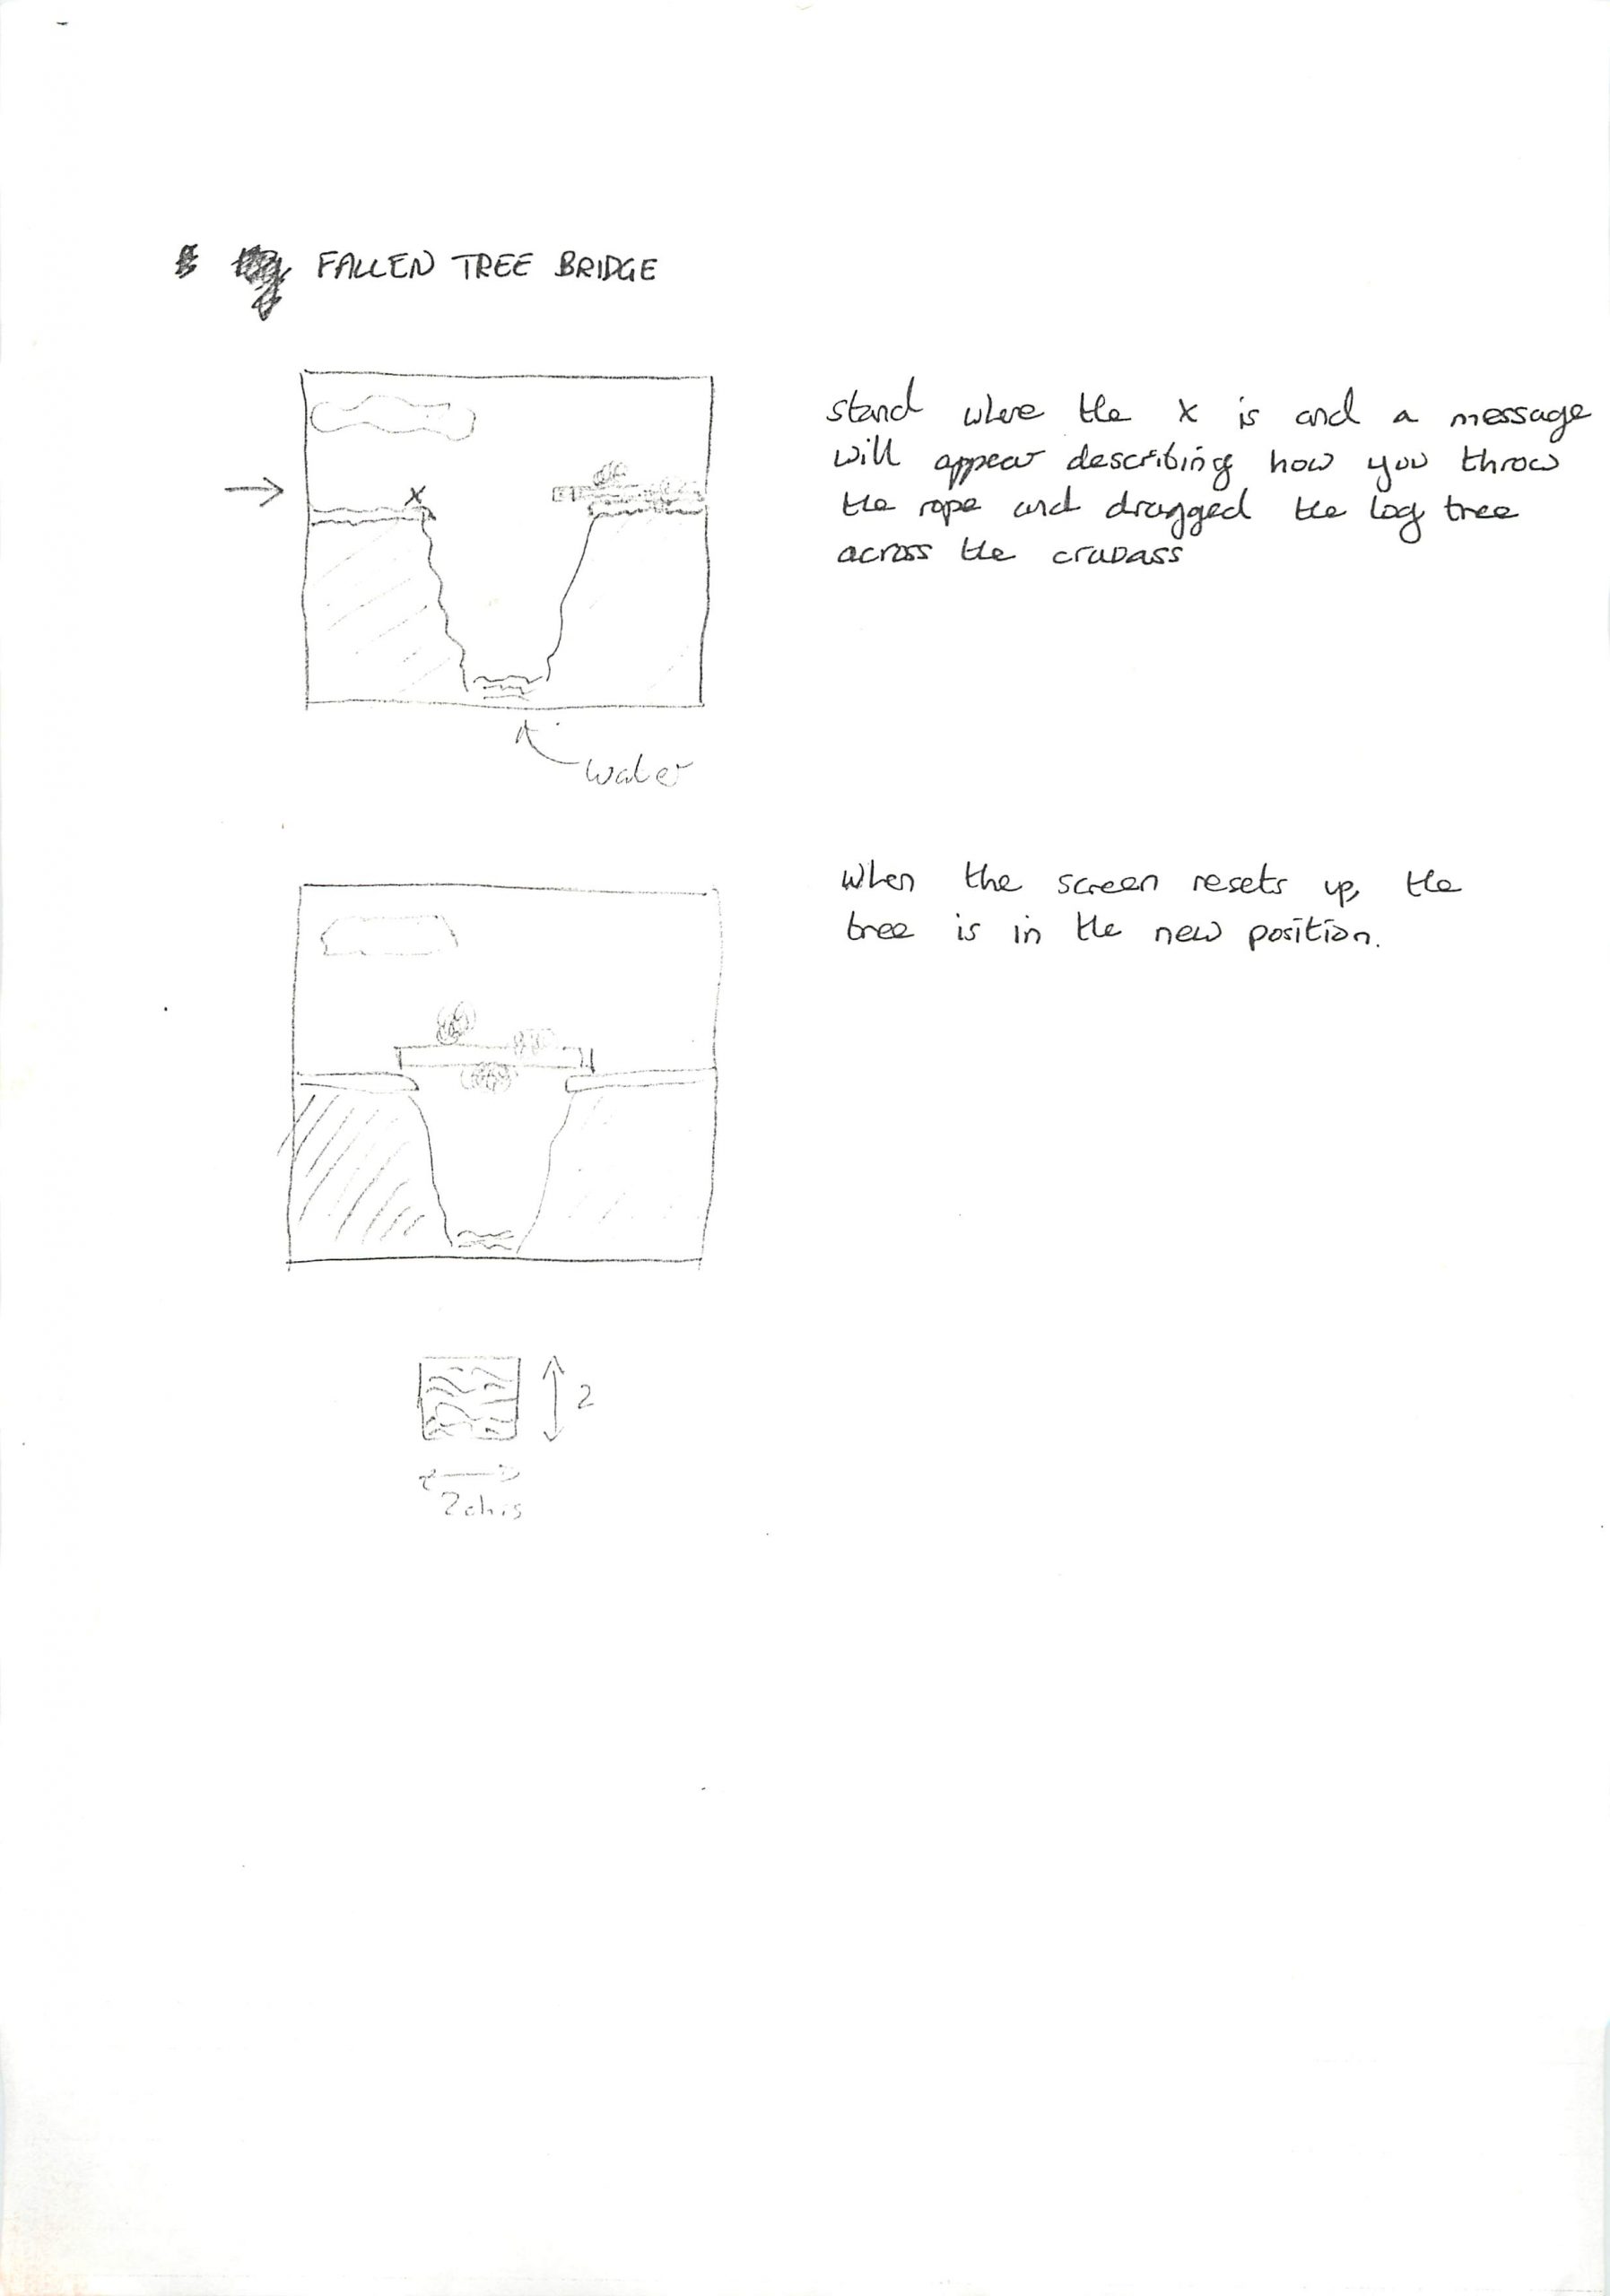 FALLEN TREE BRIDGE
stand where the x is and a message
will appear describing how you throw
the rope and dragged the log tree
across the cravass
x
water
When the screen resets up, the
tree is in the new position.
2
2chrs